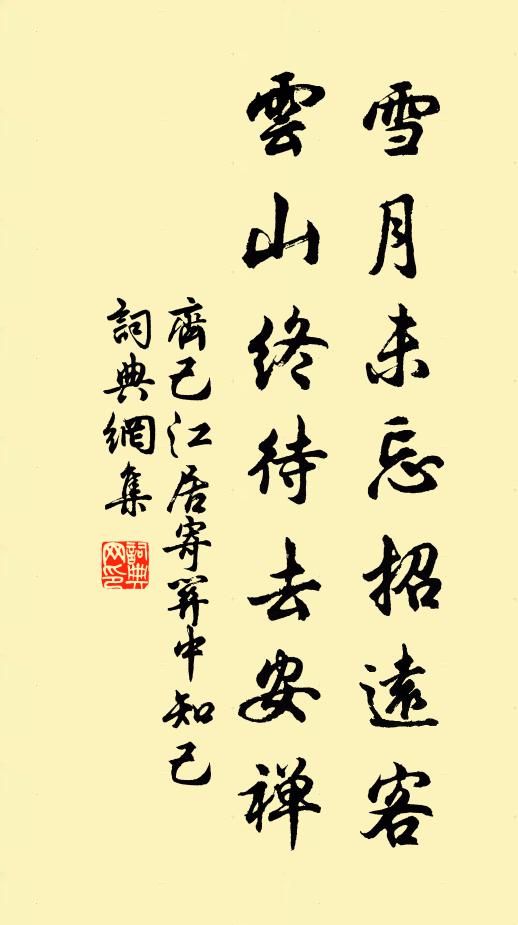 雪月未忘招遠客
雲山終待去安禪
齊己江居寄關中知己
詞典網集
詞典網印